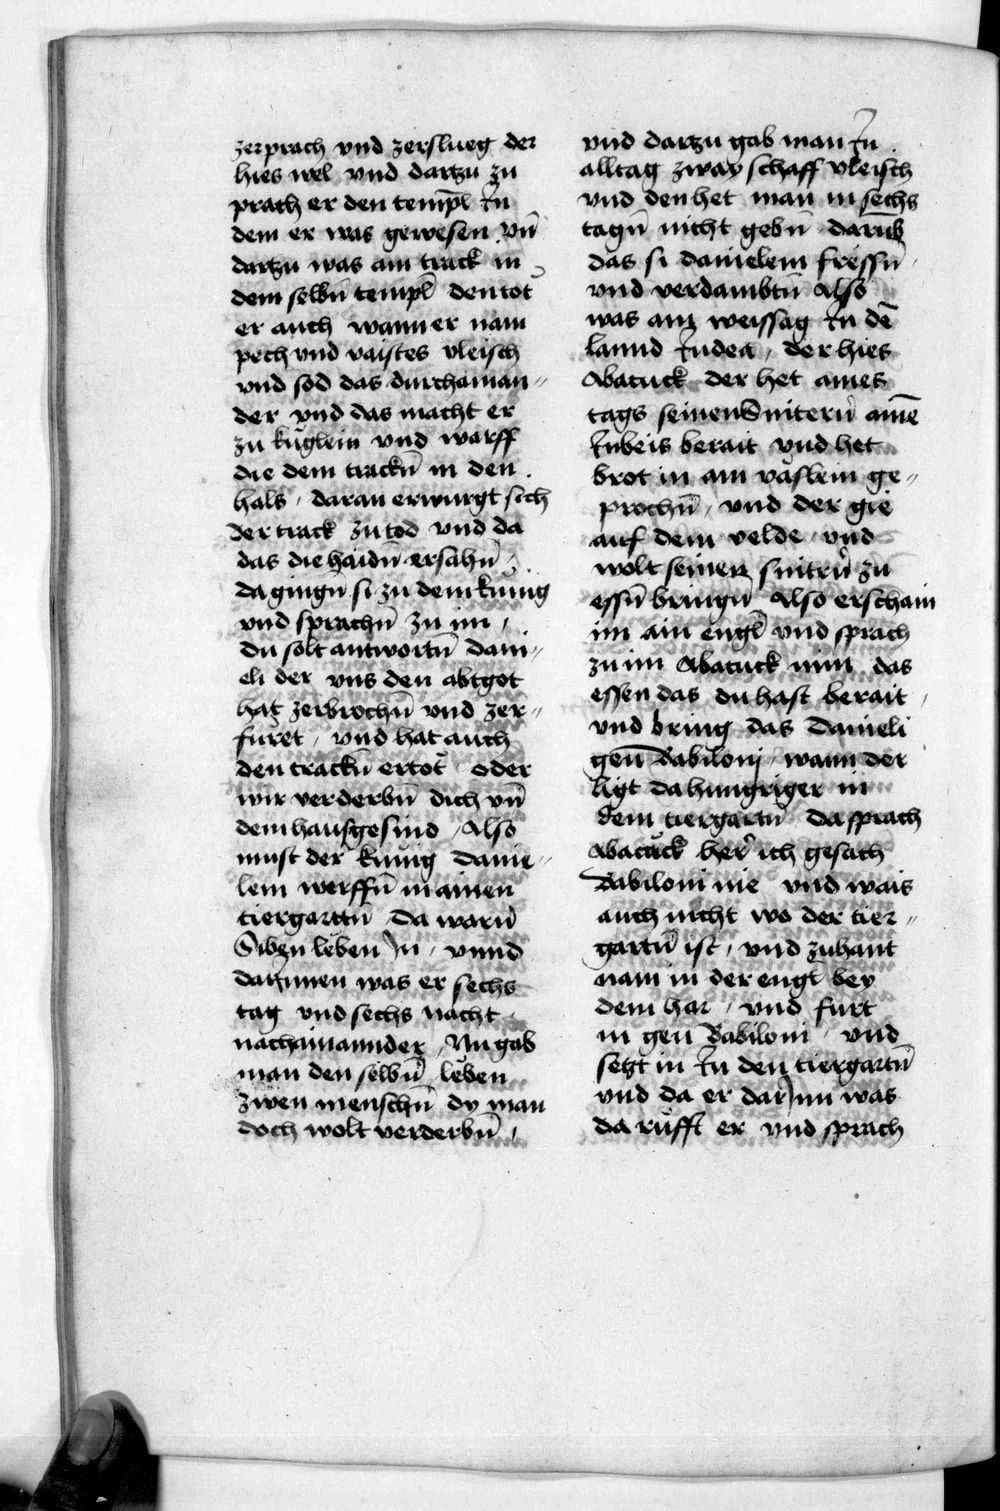 zerprach vnd zerslueg der
hies wel vnd dartzu zu
prach er den templ̄ In
dem er was gewesen vn̄
dartzu was ain track in
dem selbn̄ templ̄ den tot
er auch wann er nam
pech vnd vaistes vleisch
vnd sod das durchainan〃
der vnd das macht er
zu kuglein vnd warff
die dem trackn̄ in den
hals / daran erwurgt sich
der track zu tod vnd da
das die haidn̄ ersahn̄ /
da gingn̄ si zu dem kunig
vnd sprachn̄ zu im /
du solt antwortn̄ dani〃
eli der vns den abtgot
hat zerbrochn̄ vnd zer〃
furet / vnd hat auch
den trackn̄ ertot oder
wir verderbn̄ dich vn̄
dem hausgesind / Also
must der kunig danie〃
lem werffn̄ in ainen
tiergarttn̄ Da warn̄
Siben leben In / vnnd
darInnen was er sechs
tag vnd sechs nacht /
nachainannder / Nu gab
man den selbn̄ leben
zwen menschn̄ dy man
doch wolt verderbn̄ /
vnd dartzu gab man In
alltag zway schaff vleisch
vnd den het man in sechs
tagn̄ nicht gebn̄ darūb
das si danielem fressn̄ /
vnd verdambtn̄ Also
was ainz weissag In dē
lannd Judea / der hies
Abacuck der het aines
tags seinen Snitern̄ ainē
Inbeis berait vnd het
brot in ain väslein ge〃
prochn̄ / vnd der gie
auf dem velde vnd
wolt seinen snitrn̄ zu
essn̄ bringn̄ Also erschain
im ain engl̄ vnd sprach
zu im Abacuck nim das
essen das du hast berait /
vnd bring das Danieli
gen̄ Babiloni / wann der
ligt da hungriger in
dem tiergartn̄ da sprach
Abacuck her̄ ich gesach
Babiloni nie vnd wais
auch nicht wo der tier〃
gartn̄ ist / vnd zuhant
nam in der engl̄ bey
dem har / vnd furt
in gen Babiloni / vnd
setzt in In den tiergartn̄
vnd da er darInn was
da rufft er vnd sprach